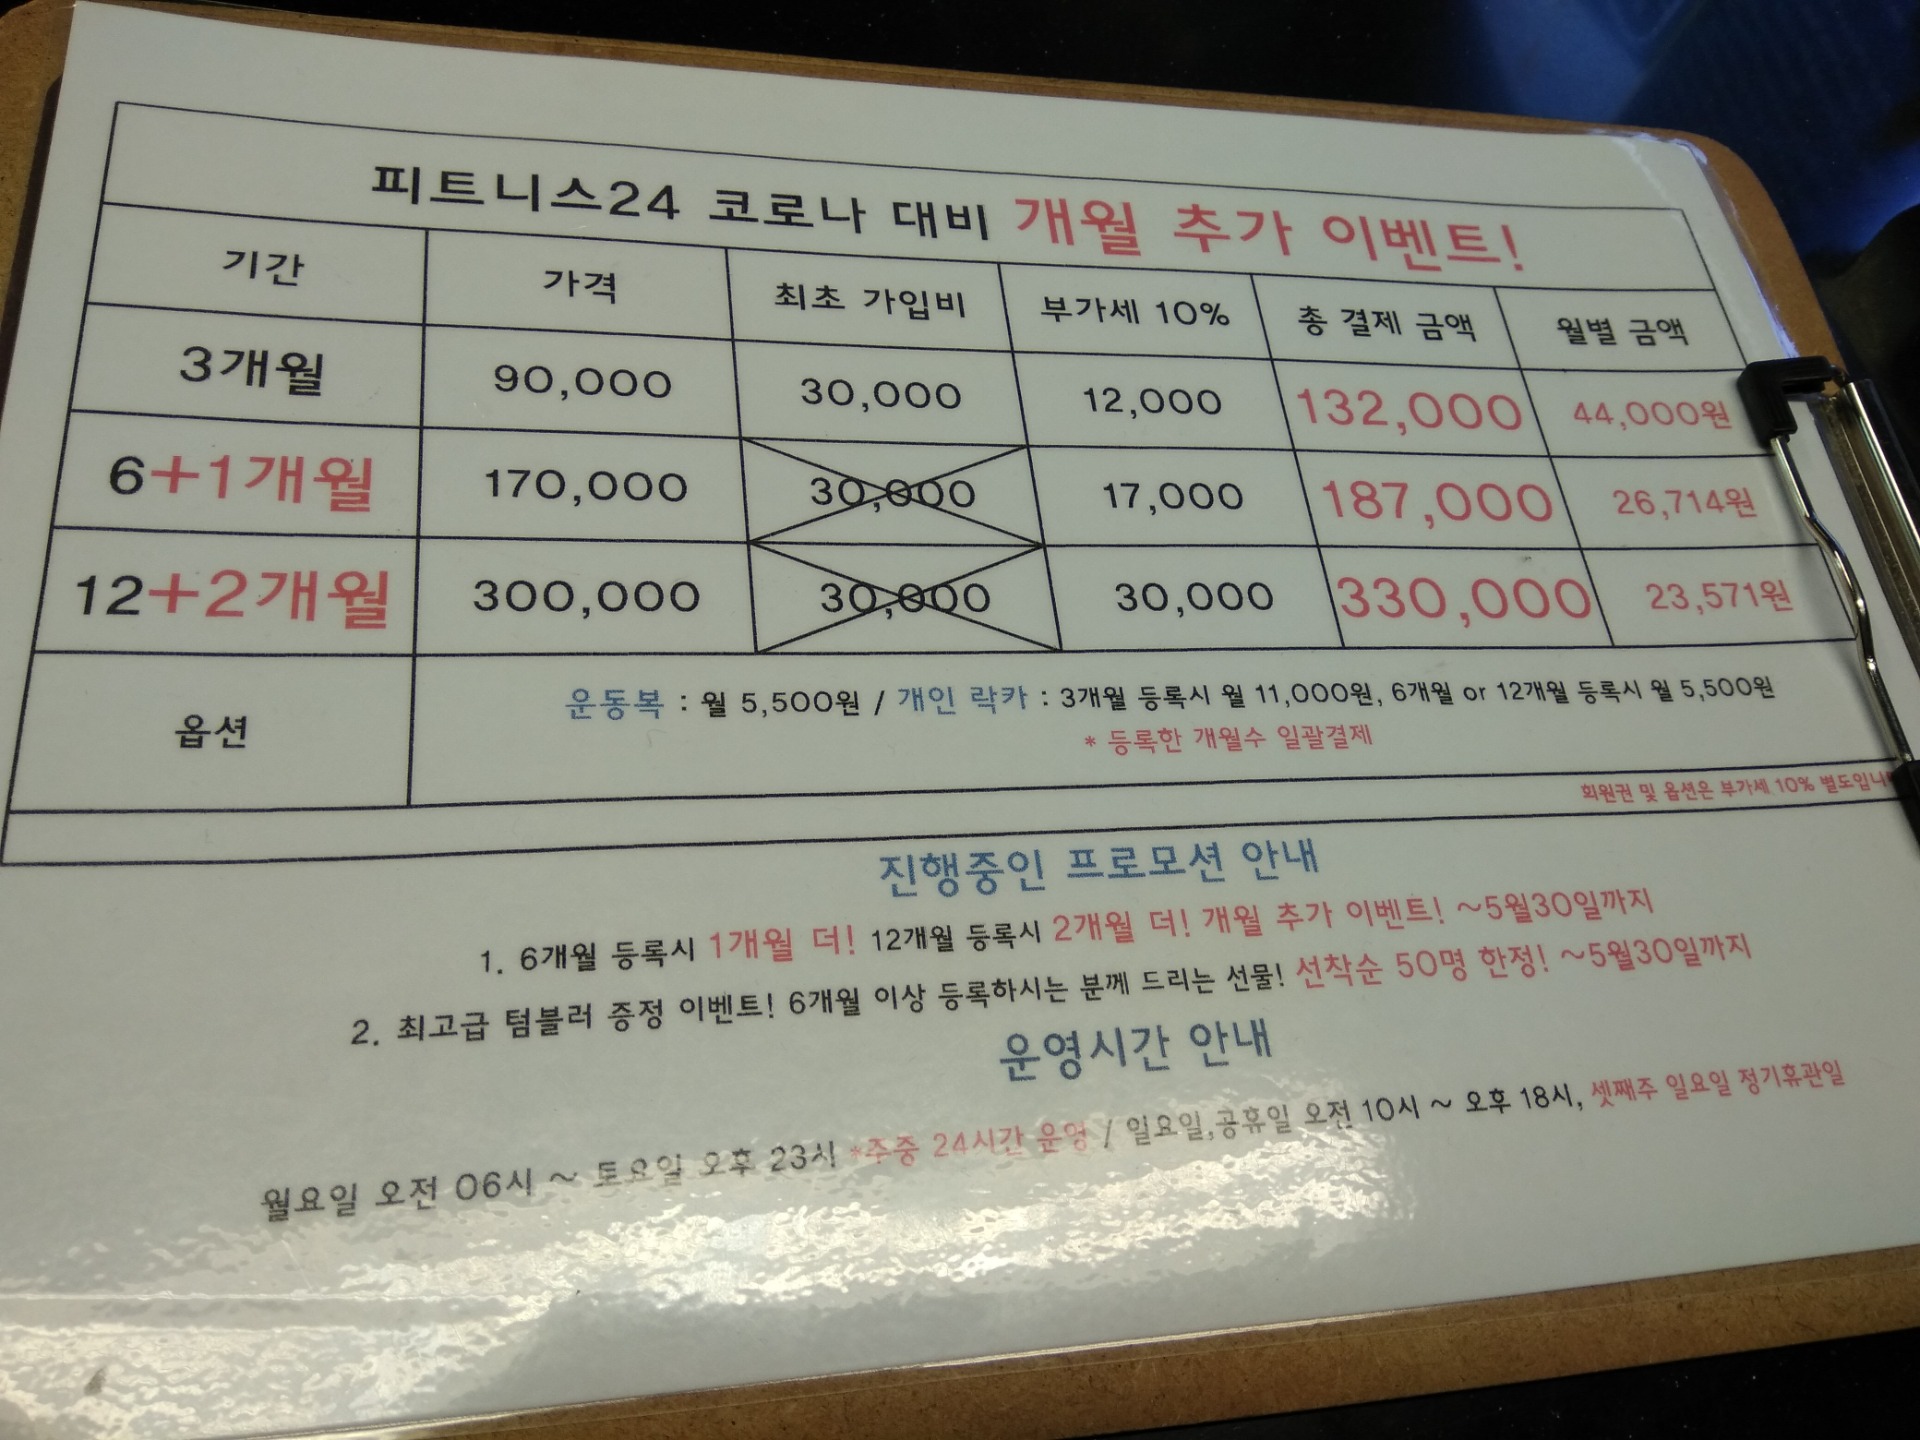 피트니스24 코로나 대비 개월 추가 이벤트!
기간 가격 최초 가입비 부가세 10% 총 결제 금액 월별 금액
3개월 90,000 30,000 12,000 132,000 44,000원
6+1개월 170,000 30,000 17,000 187,000 26,714원
12+2개월 300,000 30,000 30,000 330,000 23,571원
옵션 운동복 : 월 5,500원 / 개인 락카 : 3개월 등록시 월 11,000원, 6개월 or 12개월 등록시 월 5,500원
* 등록한 개월수 일괄결제
회원권 및 옵션은 부가세 10%
진행중인 프로모션 안내
1. 6개월 등록시 1개월 더! 12개월 등록시 2개월 더! 개월 추가 이벤트! ~5월30일까지
2. 최고급 텀블러 증정 이벤트! 6개월 이상 등록하시는 분께 드리는 선물! 선착순 50명 한정! ~5월30일까지
운영시간 안내
월요일 오전 06시 ~ 토요일 오후 23시 *주중 24시간 운영 / 일요일,공휴일 오전 10시 ~ 오후 18시, 셋째주 일요일 정기휴관일